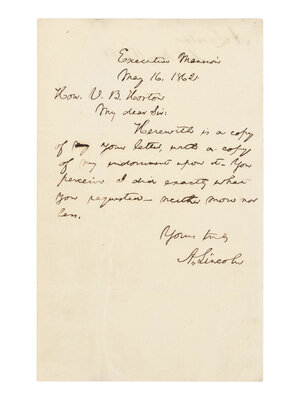 Executive Mansion
May 16. 1862.
Hon. V. B. Horton
My dear Sir:
Herewith is a copy
of my your letter, with a copy
of my indorsement upon it– You
perceive I did exactly what
you requested– neither more nor
less.
Yours truly
A. Lincoln